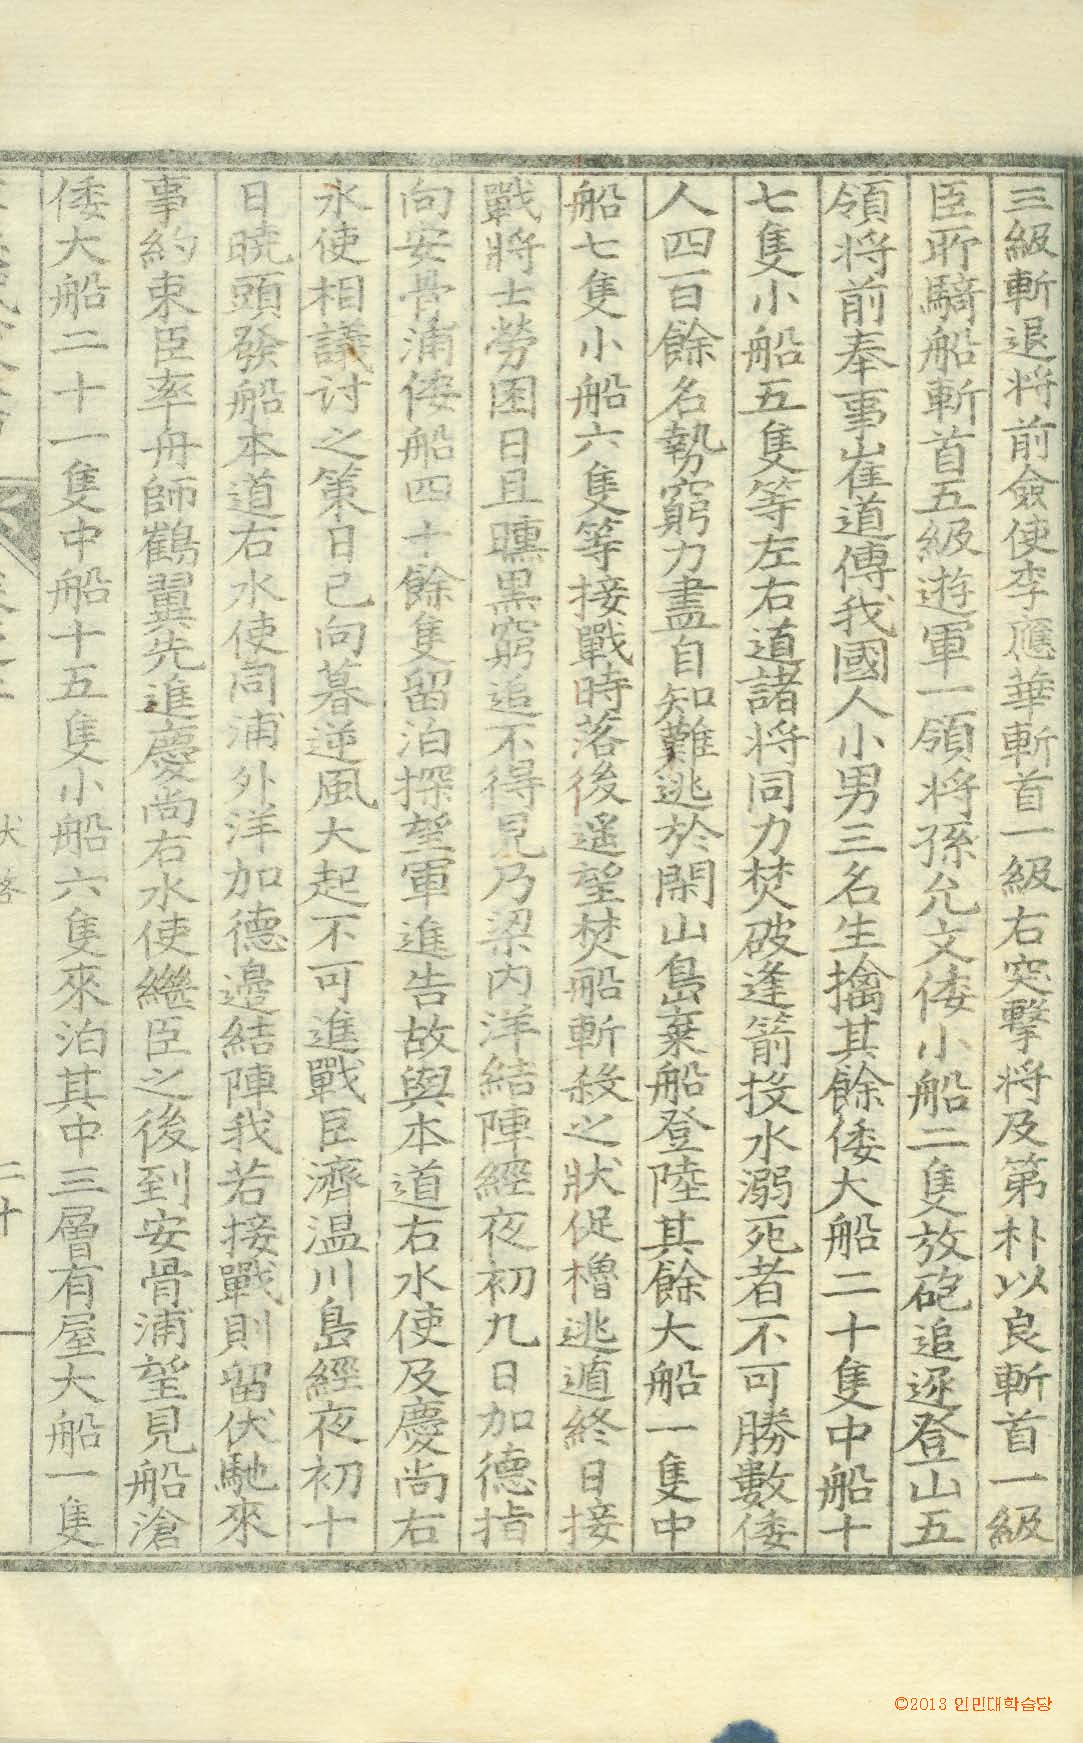 三級斬退將前僉使李應華斬首一級右突擊將及第朴以良斬首一級
臣所騎船斬首五級遊軍一領將孫允文倭小船二隻放砲追逐登山五
領將前奉事崔道傳我國人小男三名生擒其餘倭大船二十隻中船十
七隻小船五隻等左右道諸將同力焚破逢箭投水溺死者不可勝數倭
人四百餘名勢窮力盡自知難逃於閑山島棄船登陸其餘大船一隻中
船七隻小船六隻等接戰時落後遙望焚船斬殺之狀促櫓逃遁終日接
戰將士勞困日且曛黑窮追不得見乃梁內洋結陣經夜初九日加德指
向安骨浦倭船四十餘隻留泊探望軍進告故與本道右水使及慶尚右
水使相議討之策日已向暮逆風大起不可進戰臣濟温川島經夜初十
日曉頭發船本道右水使同浦外洋加德邊結陣我若接戰則留伏馳來
事約束臣率舟師鶴翼先進慶尚右水使繼臣之後到安骨浦望見船滄
倭大船二十一隻中船十五隻小船六隻來泊其中三層有屋大船一隻
狀啓
二十
©2013 인민대학습당